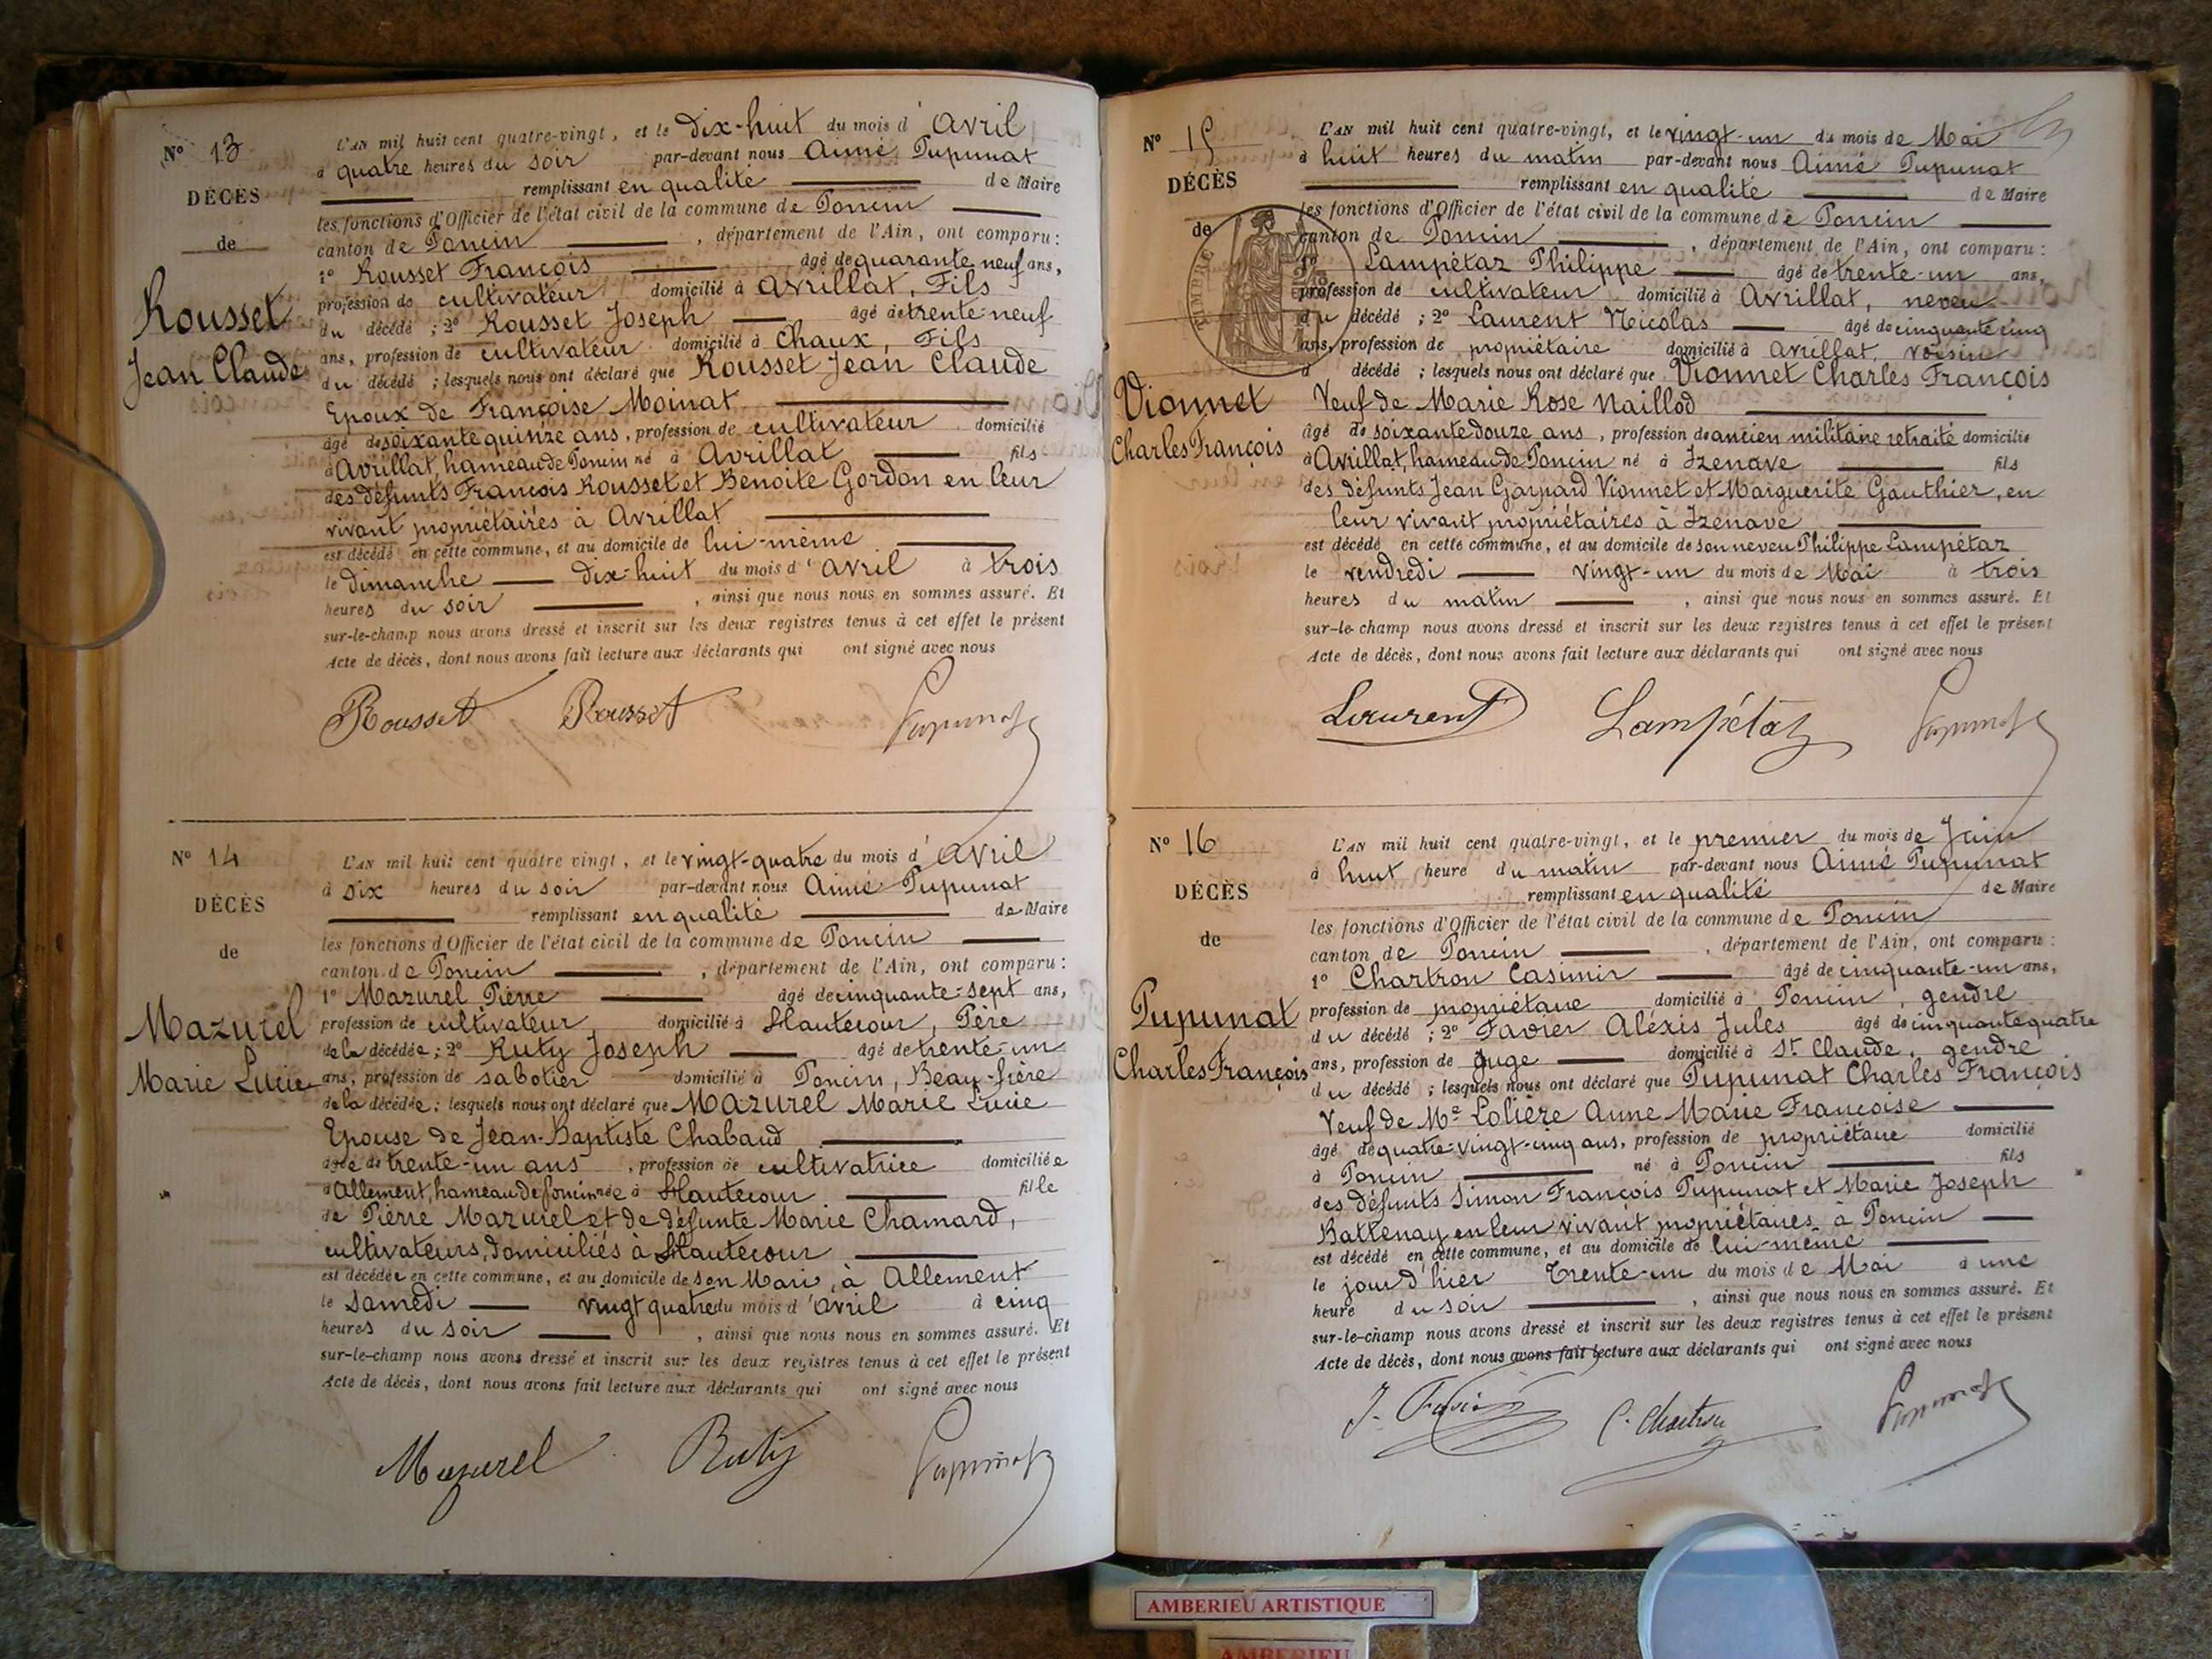 N° 13
DÉCÈS
de
Rousset
Jean Claude
L'AN mil huit cent quatre-vingt, et le Dix-huit du mois d'Avril
à quatre heures du soir par-devant nous Aimé Pupunat
remplissant en qualité de Maire
les fonctions d'Officier de l'état civil de la commune de Poncin
canton de Poncin, département de l'Ain, ont comparu:
1° Rousset François âgé de quarante neuf ans,
profession de cultivateur domicilié à Avrillat, Fils
du décédé ; 2° Rousset Joseph âgé de trente-neuf
ans, profession de cultivateur domicilié à Chaux, Fils
du décédé ; lesquels nous ont déclaré que Rousset Jean Claude
Epoux de Françoise Moinat
âgé de soixante quinze ans, profession de cultivateur domicilié
à Avrillat, hameau de Poncin né à Avrillat fils
des défunts François Rousset et Benoite Gordon en leur
vivant propriétaires à Avrillat
est décédé en cette commune, et au domicile de lui-même
le Dimanche Dix-huit du mois d'avril à trois
heures du soir, ainsi que nous nous en sommes assuré. Et
sur-le-champ nous avons dressé et inscrit sur les deux registres tenus à cet effet le présent
Acte de décès, dont nous avons fait lecture aux déclarants qui ont signé avec nous
Rousset Rousset Pupunat
N° 14
DÉCÈS
de
Mazurel
Marie Lucie
L'AN mil huit cent quatre vingt, et le vingt-quatre du mois d'avril
à six heures du soir par-devant nous Aimé Pupunat
remplissant en qualité de Maire
les fonctions d'Officier de l'état civil de la commune de Poncin
canton de Poncin, département de l'Ain, ont comparu:
1° Mazurel Pierre âgé de cinquante-sept ans,
profession de cultivateur, domicilié à Hautecour, Père
de la décédée ; 2° Ruty Joseph âgé de trente-un
ans, profession de sabotier domicilié à Poncin, Beau-frère
de la décédée ; lesquels nous ont déclaré que Mazurel Marie Lucie
Epouse de Jean-Baptiste Chabaud
âgée de trente-un ans, profession de cultivatrice domiciliée
à Allement, hameau de Poncin née à Hautecour fille
de Pierre Mazurel et de défunte Marie Chamard,
cultivateurs, domiciliés à Hautecour
est décédée en cette commune, et au domicile de son Mari, à Allement
le Samedi vingt quatre du mois d'avril à cinq
heures du soir, ainsi que nous nous en sommes assuré. Et
sur-le-champ nous avons dressé et inscrit sur les deux registres tenus à cet effet le présent
Acte de décès, dont nous avons fait lecture aux déclarants qui ont signé avec nous
Mazurel Ruty Pupunat
N° 15
DÉCÈS
de
TIMBRE
Vionnet
Charles François
L'AN mil huit cent quatre-vingt, et le vingt-un du mois de Mai
à huit heures du matin par-devant nous Aimé Pupunat
remplissant en qualité de Maire
les fonctions d'Officier de l'état civil de la commune de Poncin
canton de Poncin, département de l'Ain, ont comparu:
1° Lampétaz Philippe âgé de trente-un ans,
profession de cultivateur domicilié à Avrillat, neveu
du décédé ; 2° Laurent Nicolas âgé de cinquante cinq
ans, profession de propriétaire domicilié à Avrillat, voisin
d décédé ; lesquels nous ont déclaré que Vionnet Charles François
Veuf de Marie Rose Naillod
âgé de soixante douze ans, profession de ancien militaire retraité domicilié
à Avrillat, hameau de Poncin né à Izenave fils
des défunts Jean Gaspard Vionnet et Marguerite Gauthier, en
leur vivant propriétaires à Izenave
est décédé en cette commune, et au domicile de son neveu Philippe Lampétaz
le vendredi vingt-un du mois de Mai à trois
heures du matin, ainsi que nous nous en sommes assuré. Et
sur-le-champ nous avons dressé et inscrit sur les deux registres tenus à cet effet le présent
Acte de décès, dont nous avons fait lecture aux déclarants qui ont signé avec nous
Laurent Lampétaz Pupunat
N° 16
DÉCÈS
de
Pupunat
Charles François
L'AN mil huit cent quatre-vingt, et le premier du mois de Juin
à huit heure du matin par-devant nous Aimé Pupunat
remplissant en qualité de Maire
les fonctions d'Officier de l'état civil de la commune de Poncin
canton de Poncin, département de l'Ain, ont comparu:
1° Chartron Casimir âgé de cinquante-un ans,
profession de propriétaire domicilié à Poncin, gendre
du décédé ; 2° Favier Aléxis Jules âgé de cinquante quatre
ans, profession de Juge domicilié à St Claude, gendre
du décédé ; lesquels nous ont déclaré que Pupunat Charles François
Veuf de Me Lolière Anne Marie Françoise
âgé de quatre-vingt-cinq ans, profession de propriétaire domicilié
à Poncin né à Poncin fils
des défunts Simon François Pupunat et Marie Joseph
Battenay en leur vivant propriétaires à Poncin
est décédé en cette commune, et au domicile de lui-même
le jour d'hier Trente-un du mois de Mai à une
heure du soir, ainsi que nous nous en sommes assuré. Et
sur-le-champ nous avons dressé et inscrit sur les deux registres tenus à cet effet le présent
Acte de décès, dont nous avons fait lecture aux déclarants qui ont signé avec nous
J. Favier C. Chartron Pupunat
AMBERIEU ARTISTIQUE
AMBERIEU